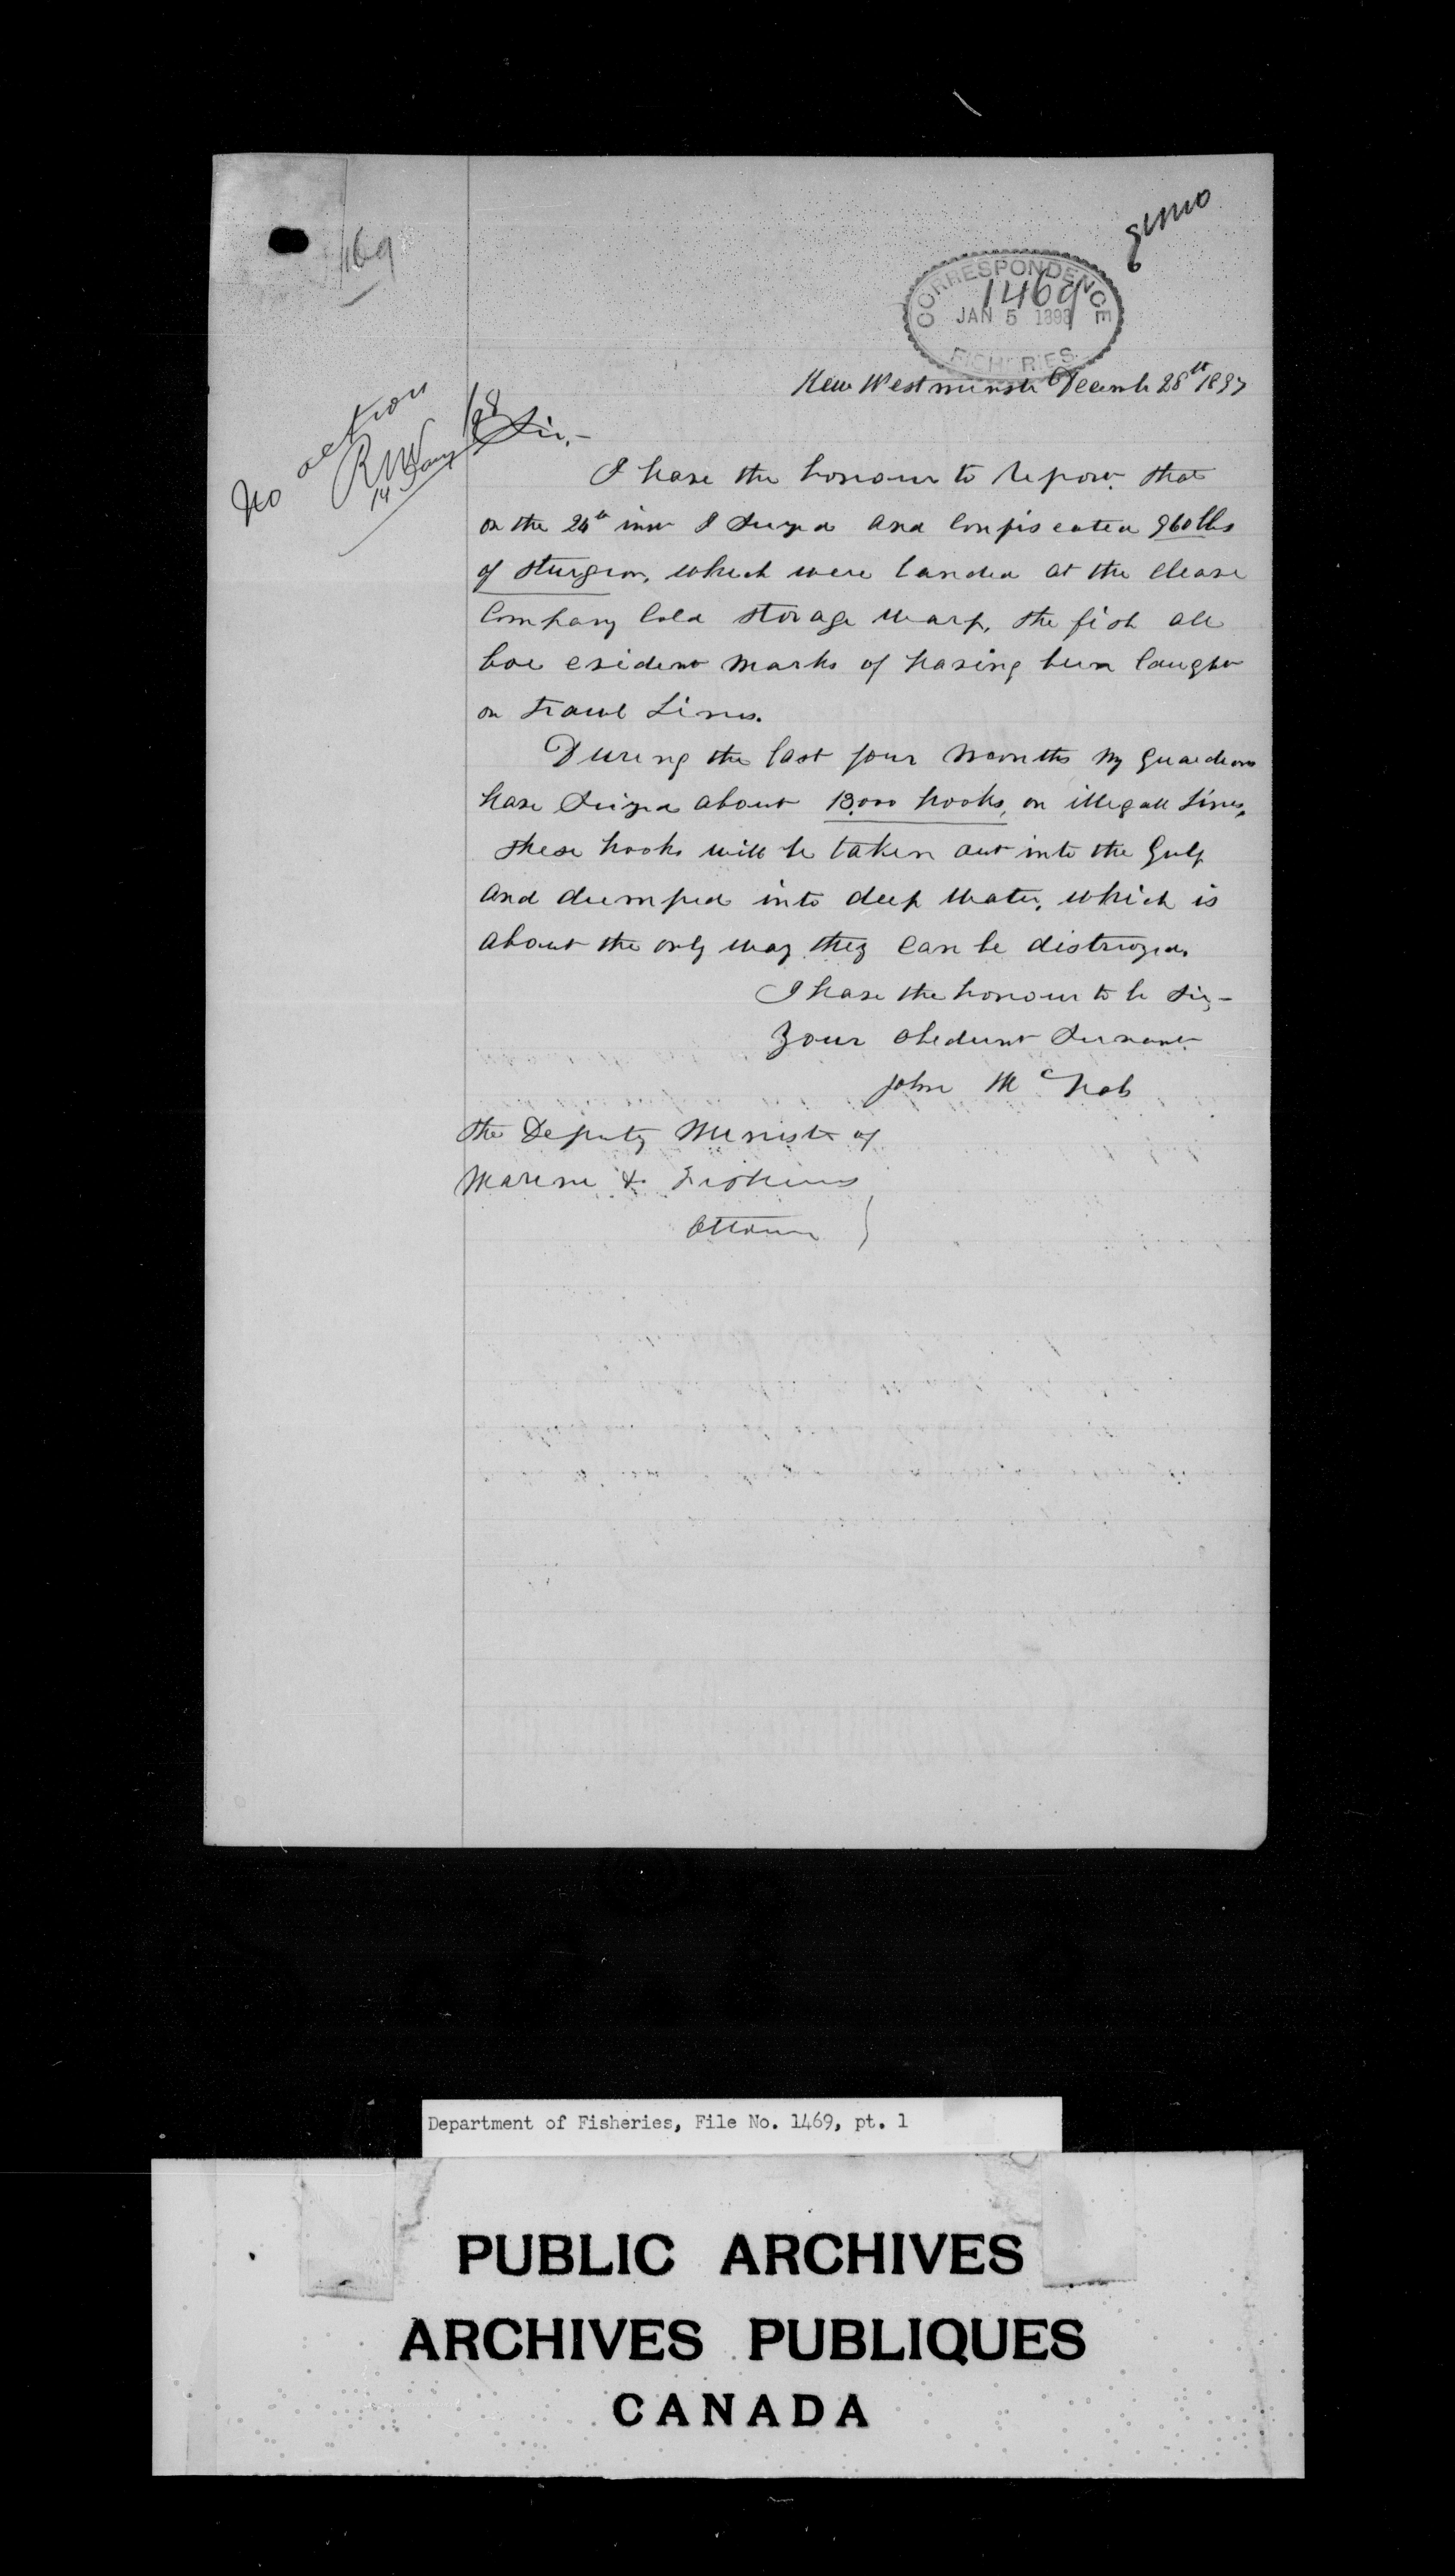 1469
CORRESPONDENCE
1469
JAN 5 1898
FISHERIES
New Westminster December 28th 1897
No action
RNV
14 Jany /98
Sir,-
I have the honour to report that
on the 24th inst I seized and confiscated 960 lbs
of sturgeon, which were landed at the
Company Cold storage wharf, the fish all
bore evident marks of having been caught
on trawl lines.
During the last four months my guardians
have seized about 13,000 hooks, on illegall lines,
these hooks will be taken out into the Gulf
and dumped into deep water, which is
about the only way they can be distroyed.
I have the honour to be Sir,-
Your obedient servant
John McNab
The Deputy Minister of
Marine & Fisheries
Ottawa
Department of Fisheries, File No. 1469, pt. 1
PUBLIC ARCHIVES
ARCHIVES PUBLIQUES
CANADA